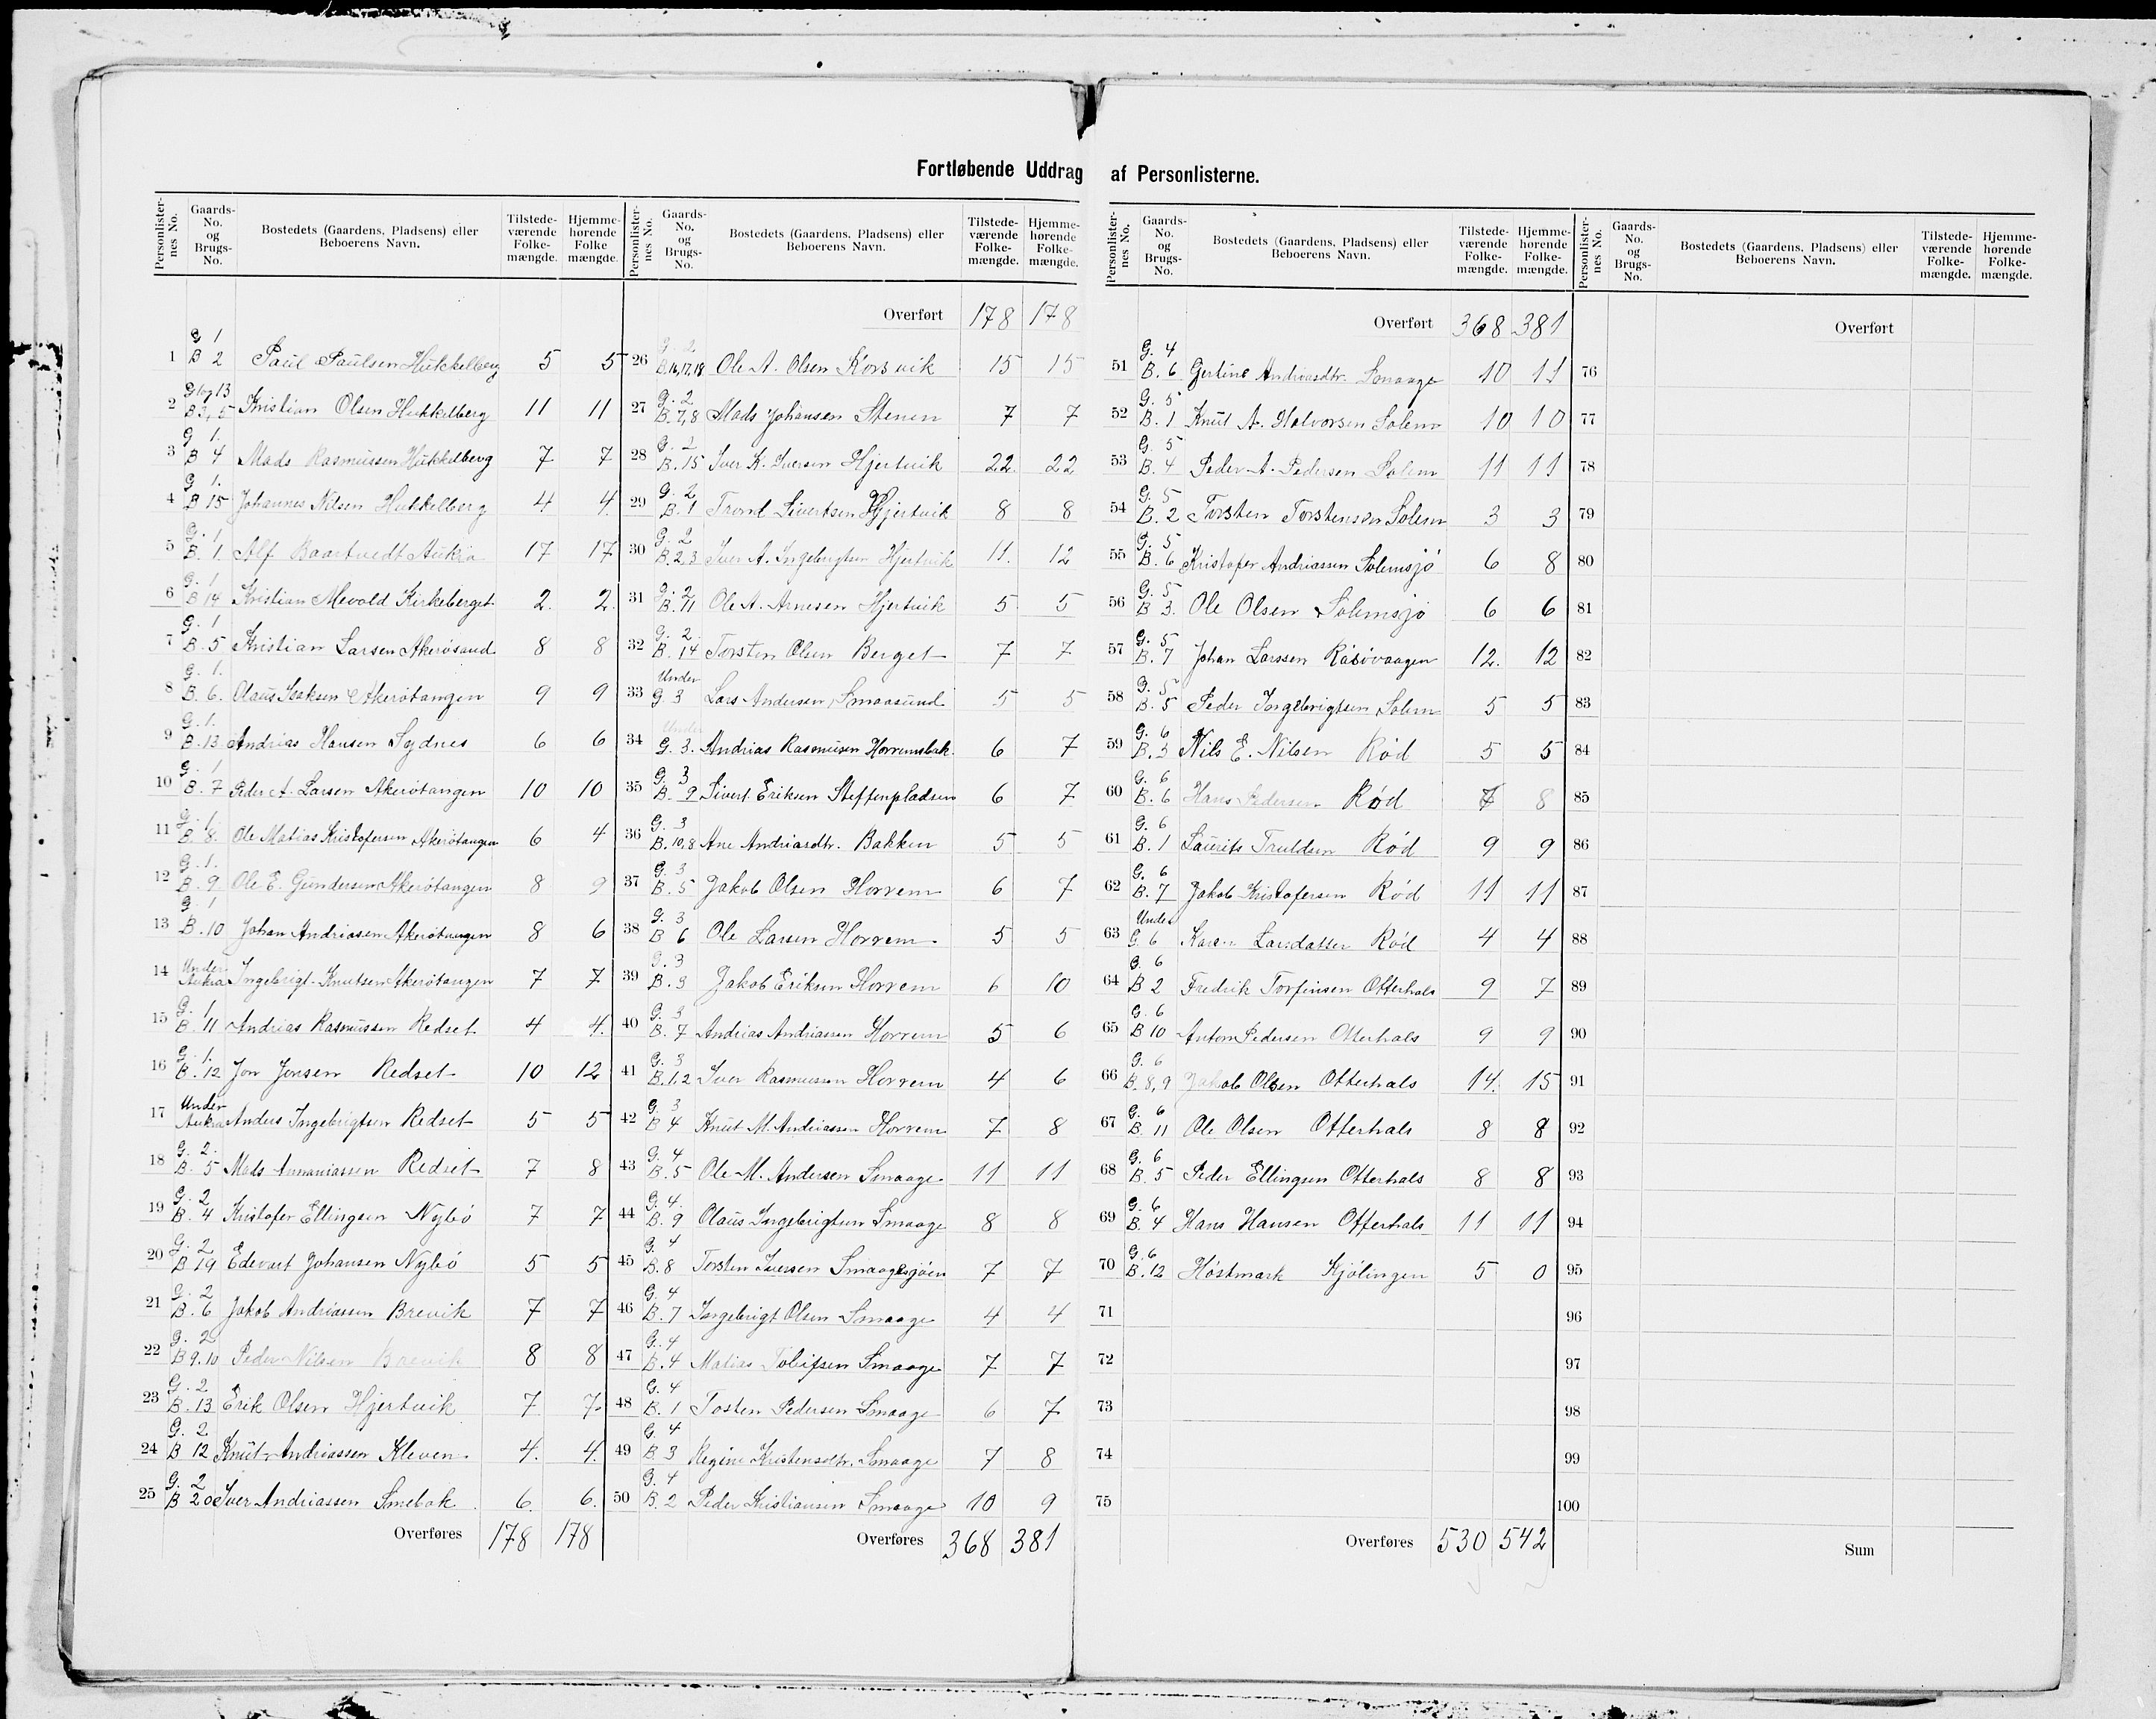 Fortløbende Uddrag af Personlisterne.
Personlisternes No. Gaards-No. og Brugs-No. Bostedets (Gaardens, Pladsens) eller Beboerens Navn. Tilstedeværende Folkemængde. Hjemmehørende Folkemængde.
1 G 1 B 2 Paul Paulsen Hukkelberg 5 5
2 G 1 og 13 B 3, 5 Kristian Olsen Hukkelberg 11 11
3 G 1. B 4 Mads Rasmussen Hukkelberg 7 7
4 G 1. B 15 Johannes Nilsen Hukkelberg 4 4
5 G. 1 B. 1. Alf Baartvedt Aukra 17 17
6 G. 1 B 14 Kristian Mevold Kirkeberget 2. 2.
7 G. 1 B. 5 Kristian Larsen Akerösund 8 8
8 G. 1. B. 6. Olaus Isaksen Akerötangen 9 9
9 G. 1. B. 13 Andrias Hansen Sydnes 6 6
10 G. 1 B. 7 Peder A. Larsen Akerötangen 10 10
11 G. 1. B. 8. Ole Matias Kristofersen Akerötangen 6 4
12 G. 1. B. 9 Ole E. Gundersen Akerötangen 8 9
13 G. 1 B. 10 Johan Andriasen Akerötangen 8 6
14 Under Aukra Ingebrigt Knutsen Akerötangen 7 7
15 G. 1 B. 11 Andrias Rasmussen Redset 4 4.
16 G. 1. B. 12 Jon Jonsen Redset 10 12
17 Under Aukra Anders Ingebrigtsen Redset 5 5
18 G. 2. B. 5 Mads Ananiassen Redset 7 8
19 G. 2 B. 4 Kristofer Ellingsen Nybö 7 7
20 G. 2 B 19 Edevart Johansen Nybö 5 5
21 G. 2 B. 6 Jakob Andriassen Brevik 7 7
22 G. 2 B 9. 10 Peder Nilsen Brevik 8 8
23 G. 2 B. 13 Erik Olsen Hjertvik 7 7.
24 G. 2 B 12 Knut Andriassen Kleven 4. 4.
25 G. 2 B 20 Iver Andriassen Smebak 6. 6.
Overføres 178 178
Personlisternes No. Gaards-No. og Brugs-No. Bostedets (Gaardens, Pladsens) eller Beboerens Navn. Tilstedeværende Folkemængde. Hjemmehørende Folkemængde.
Overført 178 178
26 G. 2 B. 16, 17, 18 Ole A. Olsen Korsvik 15 15
27 G. 2 B. 7, 8 Mads Johansen Stenen 7 7
28 G. 2 B. 15 Iver K. Iversen Hjertvik 22. 22
29 G. 2 B. 1 Trond Sivertsen Hjertvik 8 8
30 G. 2 B. 2, 3 Iver A. Ingebrigtsen Hjertvik 11. 12
31 G. 2 B. 11 Ole A. Arnesen Hjertvik 5 5
32 G. 2. B. 14 Torsten Olsen Berget 7 7
33 Under G 3 Lars Andersen, Smaasund 5 5
34 Under G. 3. Andrias Rasmusen Horremsbak. 6 7
35 G. 3 B. 9 Sivert Eriksen Steffenpladsen 6 7
36 G. 3 B. 10, 8 Ane Andriasdtr. Bakken 5 5
37 G. 3 B. 5 Jakob Olsen Horrem 6 7
38 G. 3 B 6 Ole Larsen Horrem. 5 5
39 G. 3 B. 3 Jakob Eriksen Horrem 6 10
40 G. 3 B. 7 Andrias Andriassen Horrem 5 6
41 G. 3 B. 1, 2 Iver Rasmussen Horrem 4 6
42 G. 3 B 4 Knut M. Andriassen Horrem 7 8
43 G. 4 B. 5 Ole M. Andersen Smaage 11 11
44 G. 4. B. 9 Olaus Ingebrigtsen Smaage 8 8
45 G. 4 B. 8 Torsten Iversen Smaagesjöen 7 7
46 G. 4 B. 7 Ingebrigt Olsen Smaage 4 4
47 G. 4 B. 4 Matias Tolifsen Smaage 7 7
48 G. 4 B. 1 Tosten Pedersen Smaage 6 7
49 G. 4 B. 3 Regine Kristensdtr. Smaage 7 8
50 G. 4 B. 2 Peder Kristiansen Smaage 10 9
Overføres 368 381
Personlisternes No. Gaards-No. og Brugs-No. Bostedets (Gaardens, Pladsens) eller Beboerens Navn. Tilstedeværende Folkemængde. Hjemmehørende Folkemængde.
Overført 368 381
51 G. 4 B. 6 Gertine Andriasdtr. Smaage 10 11
52 G. 5 B. 1 Knut A. Halvorsen Solem 10 10
53 G. 5 B. 4 Peder A. Pedersen Solem 11 11
54 G. 5 B. 2 Torsten Torstensen Solem 3 3
55 G. 5 B. 6 Kristofer Andriassen Solemsjö 6 8
56 G. 5 B 3. Ole Olsen Solemsjö 6 6
57 G. 5 B. 7 Johan Larssen Rásövaagen 12. 12
58 G. 5 B. 5 Peder Ingebrigtsen Solem 5 5
59 G. 6 B. 3 Nils E. Nilsen Rød 5 5
60 G. 6 B. 6 Hans Pedersen Rød 7 8
61 G. 6 B. 1 Laurits Truldsen Rød 9 9
62 G. 6 B. 7 Jakob Kristofersen Rød 11 11
63 Under G 6 Karen Larsdatter Rød 4 4
64 G. 6 B 2 Fredrik Torfinsen Otterhals 9 7
65 G. 6 B 10 Anton Pedersen Otterhals 9 9
66 G. 6 B. 8, 9 Jakob Olsen Otterhals 14. 15
67 G. 6 B. 11 Ole Olsen Otterhals 8 8
68 G. 6 B. 5 Peder Ellingsen Otterhals 8 8
69 G. 6 B. 4 Hans Hansen Otterhals 11 11
70 G. 6 B. 12 Höstmark Kjölingen 5 0
71
72
73
74
75
Overføres 530 542
Personlisternes No. Gaards-No. og Brugs-No. Bostedets (Gaardens, Pladsens) eller Beboerens Navn. Tilstedeværende Folkemængde. Hjemmehørende Folkemængde.
Overført
76
77
78
79
80
81
82
83
84
85
86
87
88
89
90
91
92
93
94
95
96
97
98
99
100
Sum